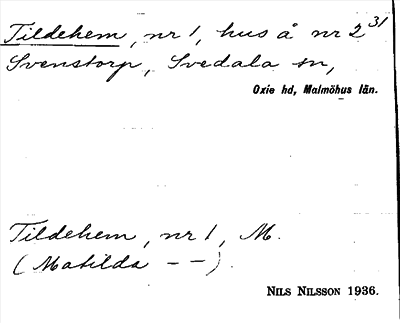 Tildehem, nr 1, hus å nr 2 31
Svenstorp, Svedala sn,
Oxie hd, Malmöhus län.
Tildehem, nr 1, M.
(Matilda – –).
NILS NILSSON 1936.